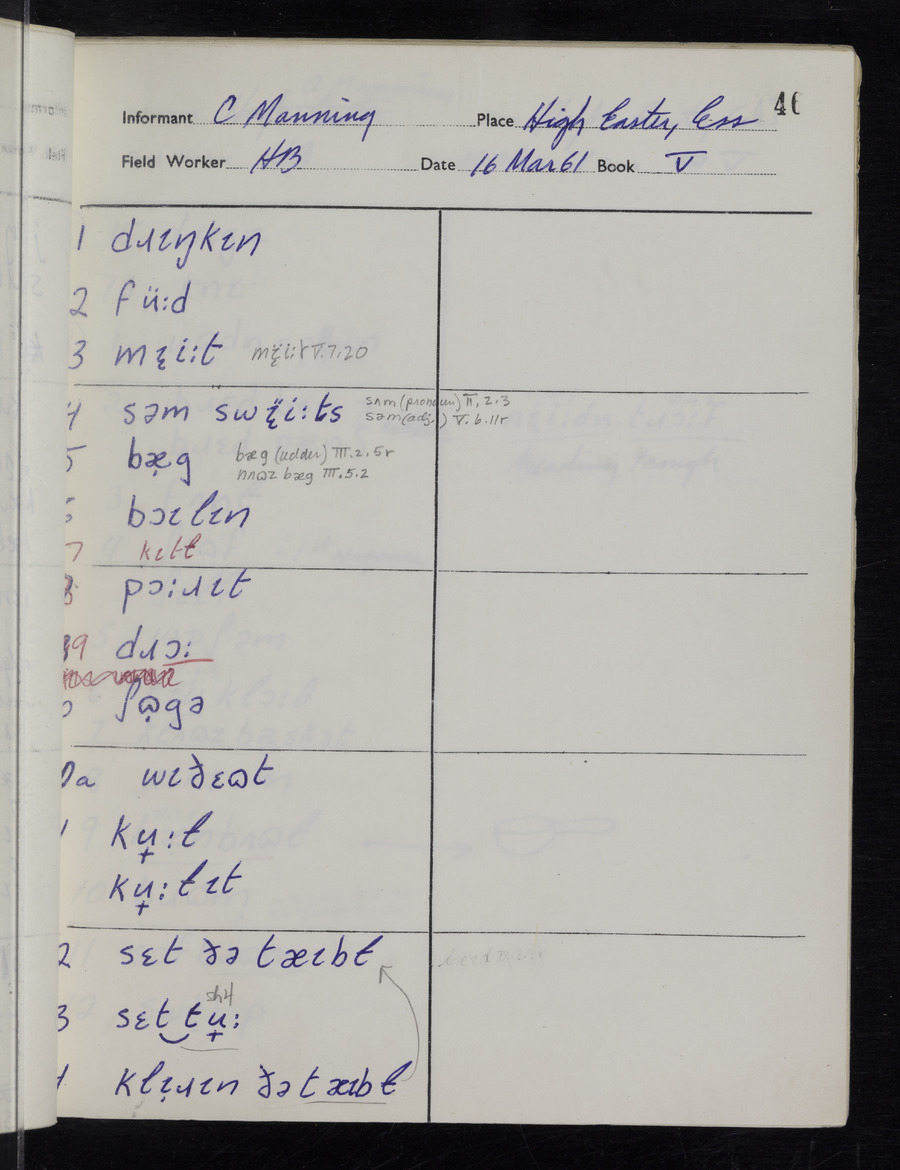 46
Informant C Manning Place High Easter, Ess
Field Worker HB Date 16 Mar 61 Book V
1 dɹɪŋkɪn
2 fü:d
3 mɪ̞̈i:t mɪ̞̈i:t V.7.20
4 səm swɪ̞̈i:ts sʌm (pronoun) VII.2.3
səm (adj.) V.6.11r
5 bæ̞g bæg (udder) III.2.5r
nʌʊz bæg III.5.2
6 bɔɪlɪn
7 kɪɫt
8 pɔ:ɹɪt
9 dɹɔ:
ʃʊ̞gə
0a wɪðɛʊt
1 ku̟:ɫ
ku̟:ɫɪt
2 sɛt ðə tæɪbɫ
sh4
3 sɛt tu̟:
4 klɪ̞ɹɪn ðə tæɪbɫ